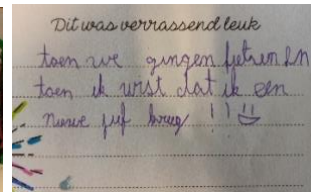 Dit was verrassend leuk
toen we gingen fietsen En
toen ik wist dat ik een
nieuwe juf kreeg !!